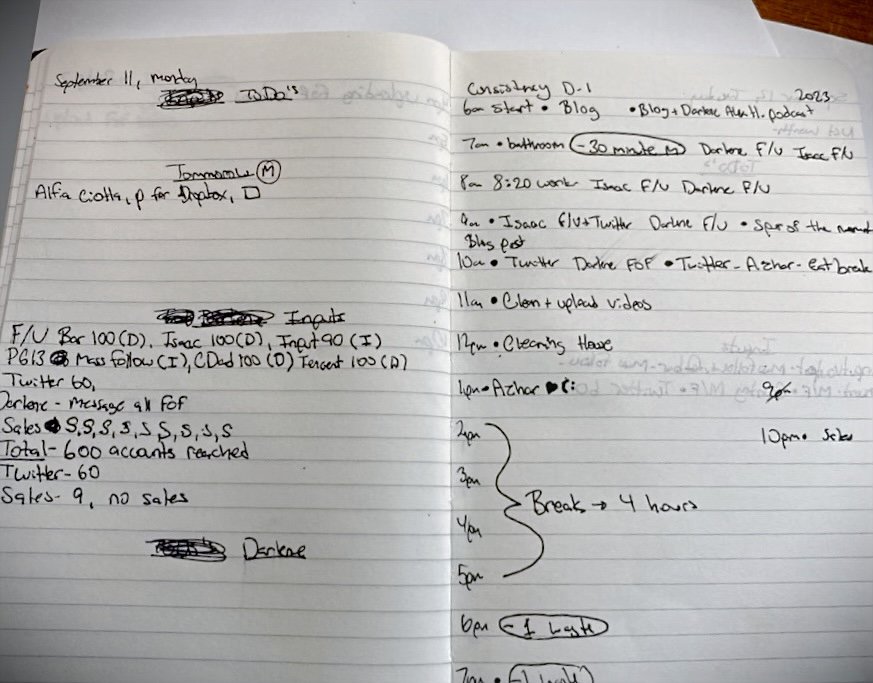 September 11, monday
ToDo's
Tommorow (M)
Alfia Ciotta, p for Dropbox,
Inputs
F/U Bar 100 (D), Isaac 100 (D), Input 90 (I)
PG13 Mass Follow (I), CDad 100 (D) Tercent 100 (A)
Twitter 60,
Darlene - Message all FOF
Sales S, S, S, S, S, S, S, S, S
Total - 600 accounts reached
Twitter - 60
Sales - 9, no sales
Darlene
Consistency D-1
2023
6am start • Blog • Blog + Darlene podcast
7am • bathroom - 30 minute M Darlene F/U Isaac F/U
8am 8:20 work Isaac F/U Darlene F/U
9am • Isaac F/U + Twitter Darlene F/U • Spur of the moment
Blog post
10am • Twitter Darlene FOF • Twitter - Azhar - Eat break
11am • Clean + upload videos
12pm • Cleaning House
1pm • Azhar
9pm
2pm
10pm • Sales
3pm
Break → 4 hours
4pm
5pm
6pm - 1
7pm • - 1